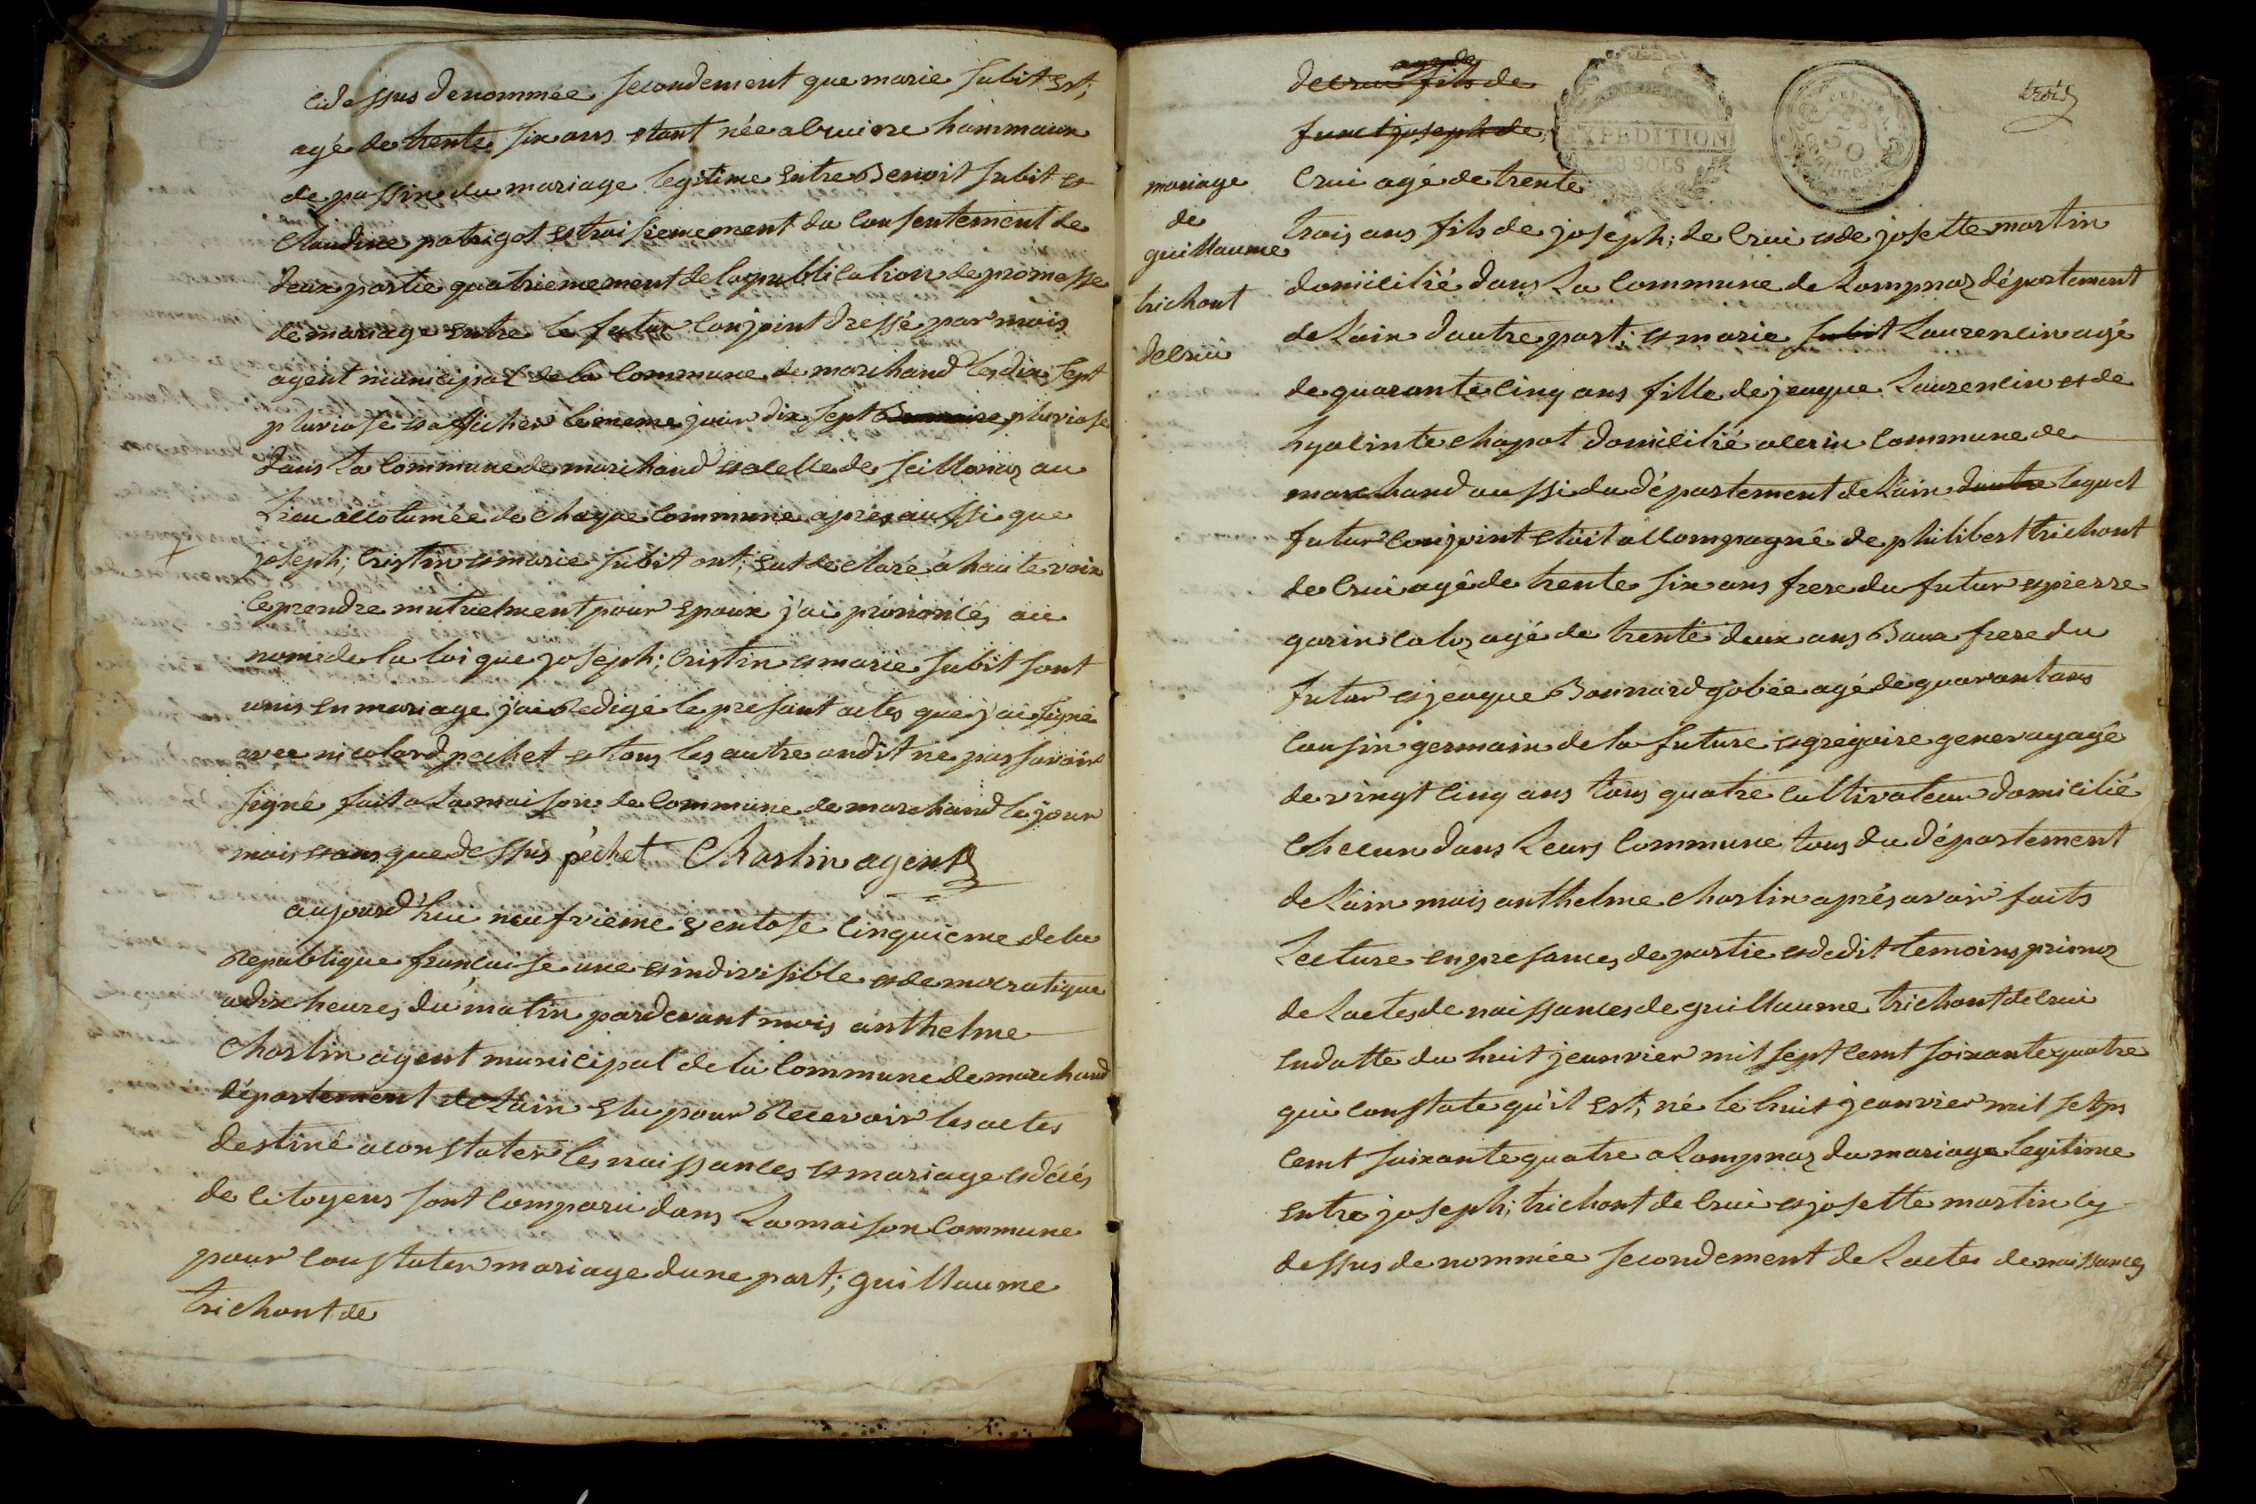 cidessus denommée secondement que marie subit est;
agé de trente six ans etant née abruiere hammaux
de passin du mariage legitime entre Benoit subit et
Claudine patrigot et troisiemement du consentement de
deux partie quatriemement de la publication de promesse
de mariage entre le futur conjoint dressé par mois
agent municipal de la commune de marchand les dix sept
pluviose et afficher le meme jour dix sept pluviose
dans la commune de marchand et acelle de seillonaz au
Lieu accotumée de chaque commune apres aussi que
joseph; Cristin et marie subit ont; eut declaré a haute voix
ce prendre mutuelment pour epoux j'ai prononcés au
nom de la loi que joseph; Cristin et marie subit sont
unis en mariage j'ai Redigé le presant actes que j'ai signé
avec nicolard pechet et tous les autre ondit ne pas savoir
signé fait a La maison de Commune de marchand le jour
mois et ans que dessus pechet Charlin agent
aujourd'hui neufvieme ventose cinquieme de la
Republique francaise une et indivisible et democratique
a dix heures du matin pardevant mois anthelme
Charlin agent municipal de la Commune de marchand
département de L'ain elu pour Recevoir les actes
destiné a constater les naissances et mariage et décés
de citoyens sont comparu dans La maison Commune
pour constater mariage dune part; guillaume
trichont de
trois
agé de
decrui fils de
funct joseph de
EXPEDITION
8 SOLS
mariage
de
guillaume
trichont
decrui
Crui agé de trente
trois ans fils de joseph; de Crui et de josette martin
domicilié dans La Commune de Lompnaz département
de L'ain d'autre part; et marie subit Laurencin agé
de quarante cinq ans fille de jeaque Laurencin et de
hyacinte chapot domicilié a cerin Commune de
marchand aussi du département de L'ain dautre lequel
futur conjoint etait accompagné de philibert trichont
de Crui agé de trente six ans frere du futur et pierre
garin agé de trente deux ans Beaux frere du
futur et jeaque Bonnard gobée agé de quarant ans
Cousin germain de la future et gregoire genevay agé
de vingt cinq ans tous quatre cultivateur domicilié
Checun dans Leurs Commune tous du département
de L'ain mois anthelme charlin après avoir faits
Lecture en presances de partie et dedit temoins primo
de L'actes de naissances de guillaume trichont decrui
en datte du huit jeanvier mil sept cent soixante quatre
qui constate qu'il est; né le huit jeanvier mil sept
cent soixante quatre a Lompnaz du mariage legitime
entre joseph; trichont de Crui et josette martin cy
dessus denommée secondement de L'actes de naissances